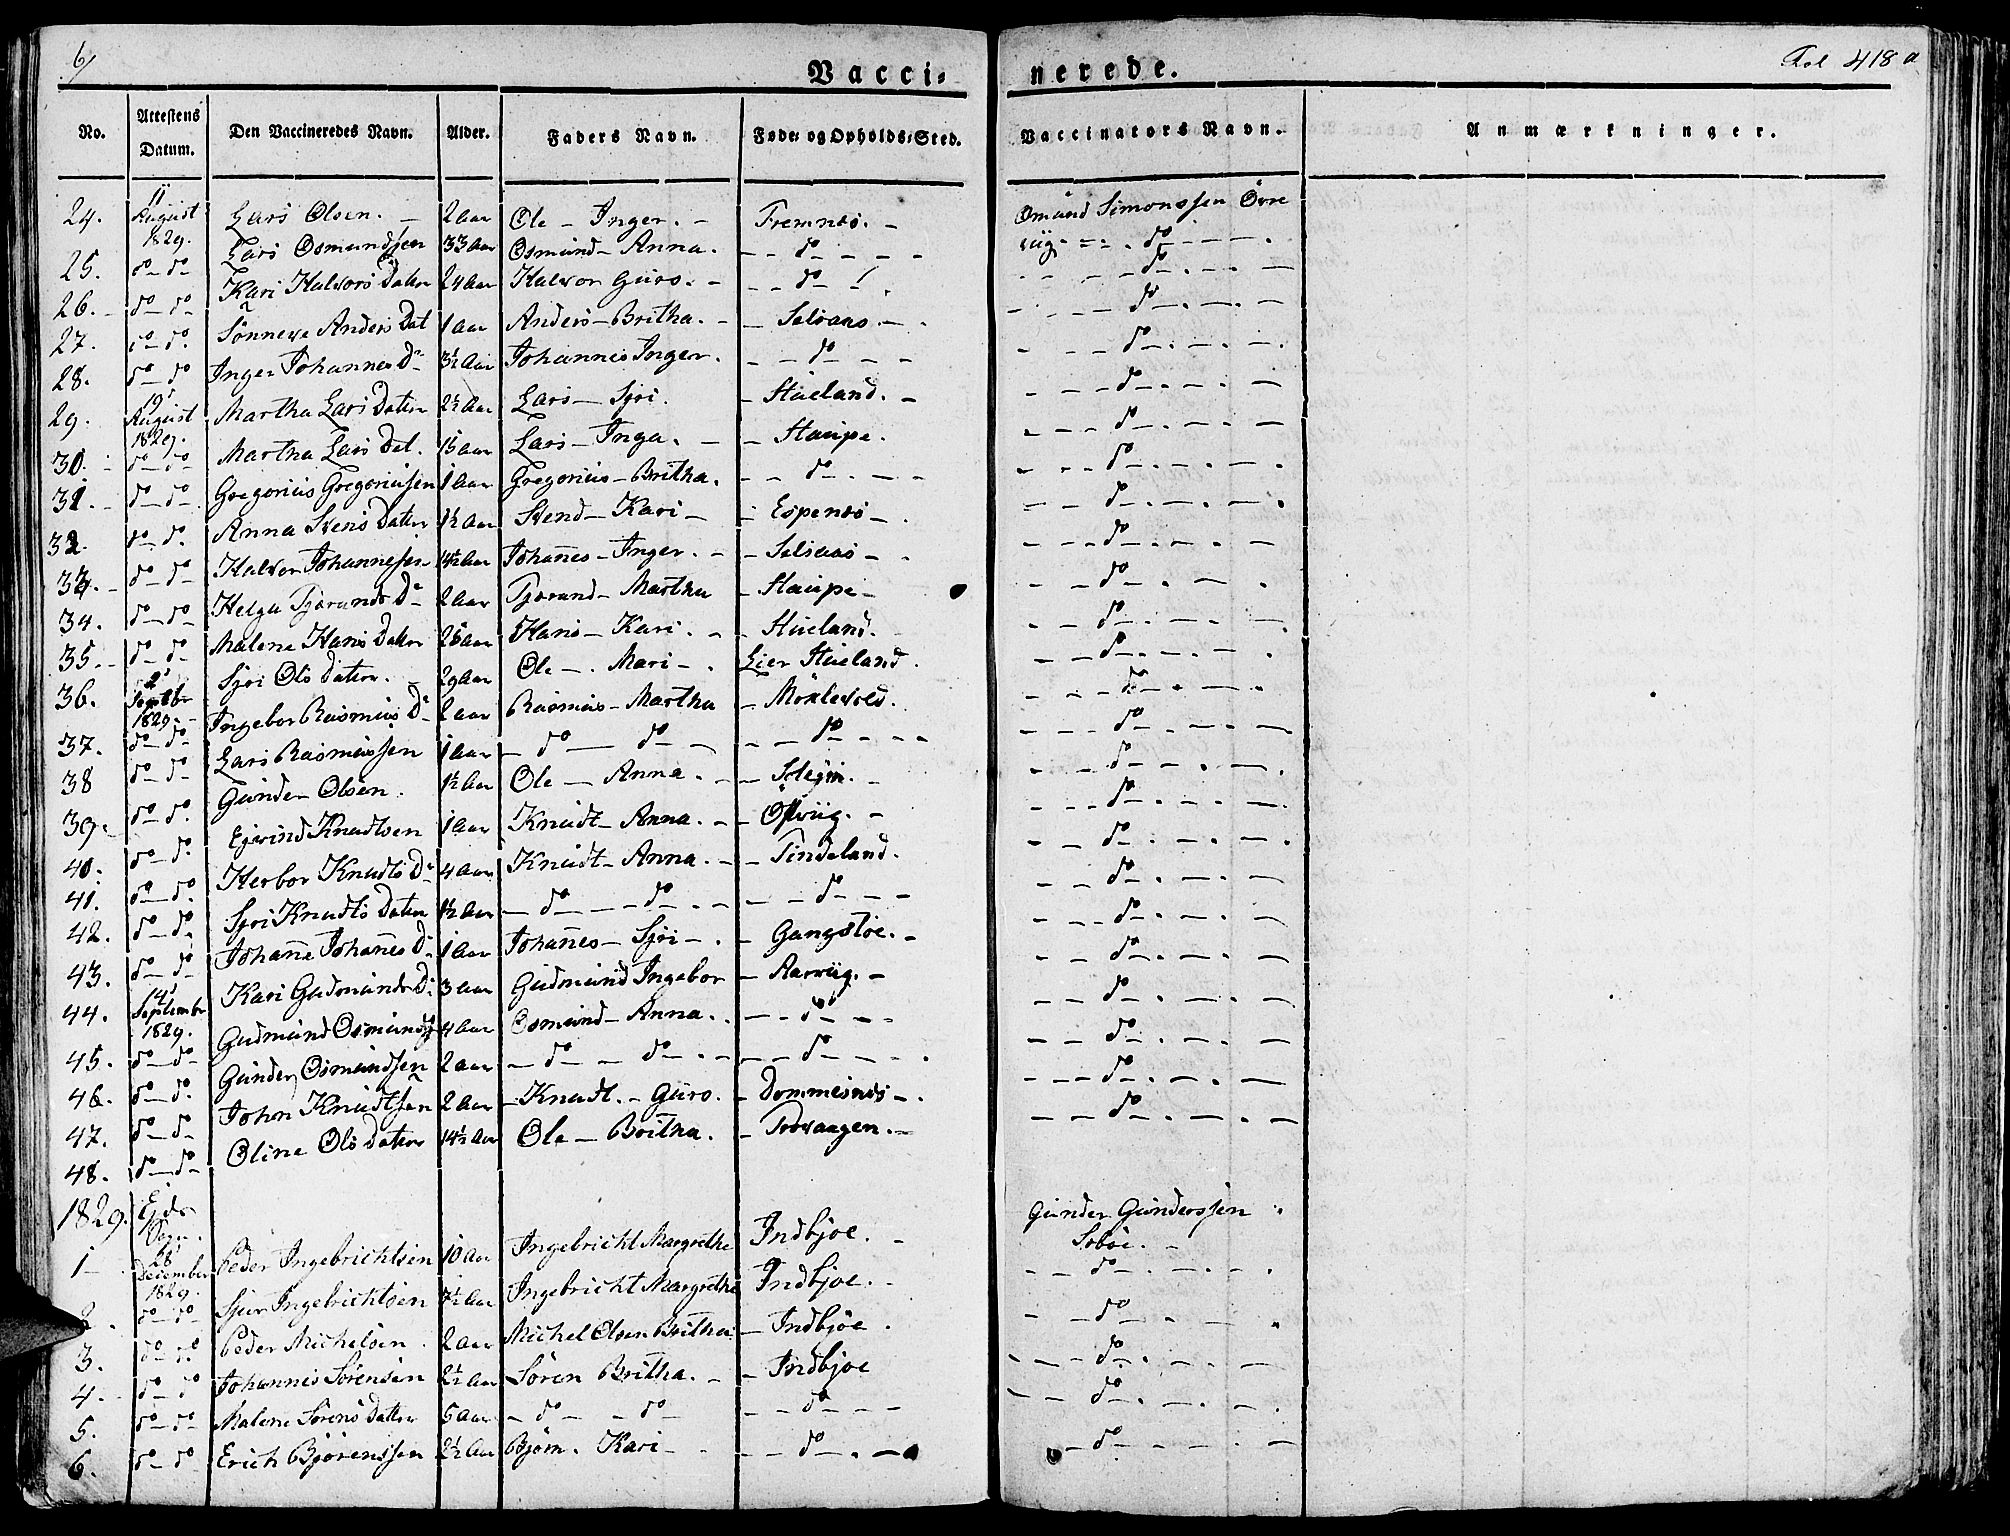 6/
Vacci-nerede.
Fol 418 a
No. Attestens Datum. Den Vaccineredes Navn. Alder. Faders Navn. Føde- og Opholds-Sted. Vaccinators Navn. Anmærkninger.
24. 11 August 1829. Lars Olsen. - 2 Aar Ole - Inger. - Fremnes. - Osmund Simonssen Øvre
25. do - do Lars Osmundssen 33 Aar Osmund - Anna. - - do - - - - viig - - - . do - - - .
26. - do - do Kari Halvors Datter 24 Aar Halvor Guro. - - - do - . - - - do - . - . -
27. do - do. Sønneve Anders Dat 1 Aar Anders - Britha. - - Selvaas. - . - - - do - . - . -
28. do - do Inger Johannes D. 3½ Aar Johannes Inger. - - do - - - - - - do - . - . -
29. 19 August 1829. Martha Lars Datter 2½ Aar Lars - Sjri. - Stueland. - - - - do - . - . -
30. - do - do Martha Lars Dat. 1½ Aar Lars - Inga. - - Staupe. - - - do - . - . -
31. - do - do Gregorius Gregoriussen 1 Aar Gregorius - Britha. - - do - . - - - - - do - . - . -
32. do - do. Anna Svens Datter 1½ Aar Svend - Kari - - Espenes - . - - - do - . - . -
33. - do - do Halvor Johannessen 14½ Aar Johanes - Inger. - - Selvaas - . - - - do - . - . -
34. do - do Helga Tjerands D. 2 Aar Tjerand - Martha - Staupe - - - do - . - .
35. - do - do Malene Hans Datter Hans - Kari. - - Stueland. - - - do - . - . -
36. 2 Septbr 1829. - Sjri Ols Datter. 29 Aar Ole - . Mari - . Lier Stueland. - - - do - . - .
37. do - do Ingebor Rasmus D. 2 Aar Rasmus - Martha - Moxlevold. - - do - . - . -
38 do - do Lars Rasmussen 1 Aar - do - do - - - do - - - - - - do - . - . -
39. - do - do. Gunder Olsen. 1½ Aar Ole - Anna. - - - - - do - . - .
40. do - do. Ejvind Knudtsen 1 Aar Knudt - Anna. - - Ølviig. - - - - do - . - .
41. do - do. Herbor Knudts D. 4 Aar Knudt - Anna. - - Tindeland. - - - do - . - .
42. do - do. Sjri Knudts Datter 1½ Aar - do - - do. - - - - do - - - - - do - . - . -
43. do - do - Johanne Johanes D. 1 Aar Johanes - Sjri - . - Gangstøe. - - - - do - . - . -
44. 14 September 1829. Kari Gudmunds D. 3 Aar Gudmund Ingebor - Aarviig. - - - - do - . - . -
45. do - do - Gudmund Osmunds. 4 Aar Osmund - Anna. - - - do - - - - - - do - . - . -
46. do - do. Gunder Osmundsen 2 Aar - do - do - . - - - do - - - . - - - do - . - . -
47. do - do - John Knudtsen 2 Aar - Knudt. - Guro. - Dommesnes - . - - - do - . - . -
48. do - do - Oline Ols Datter 14½ Aar Ole - Britha. - Torvaagen. - - - - do - . - . -
1829. Eids Sogn. Gunder Gunderssen
1 - 28 December 1829. Peder Ingebrichtsen 10 Aar Ingebricht Margrethe Indbjoe. - Sobøe. -
2. do - do Sjur Ingebrichtsen 7½ Aar Ingebricht Margrethe Indbjoe. - - - do - . - .
3. do - do. Peder Michelsen. 2 Aar Michel Olsen Britha. - Indbjoe. - - do - . - .
4. - do - do Johannes Sørensen 2½ Aar Søren Britha. - - Indbjoe - - - do - . - . -
5. do - do - Malene Sørens Datter 5 Aar - do - - do - - - do - - - - - - do - . - . -
6. do - do - Erich Bjørenssen 2½ Aar Bjørn. Kari - - - do - . - - - do - . - . -